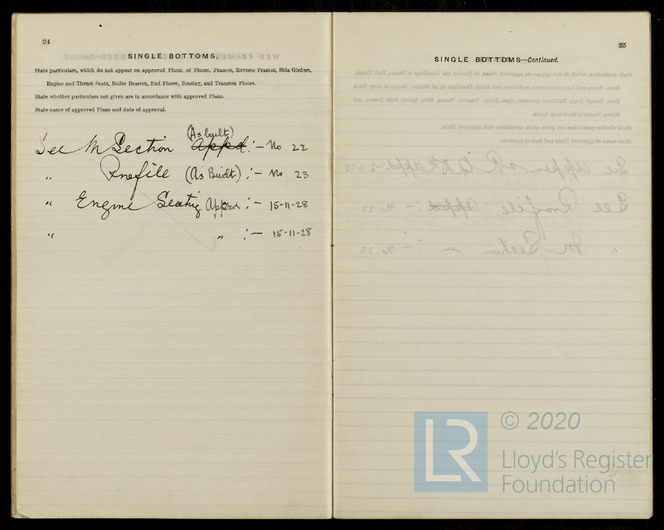 24
SINGLE BOTTOMS.
State particulars, which do not appear on approved Plans, of Floors, Frames, Reverse Frames, Side Girders,
Engine and Thrust Seats, Boiler Bearers, End Floors, Bossing, and Transom Floors.
State whether particulars not given are in accordance with approved Plans.
State name of approved Plans and date of approval.
(As built)
See M Section Appd :- No 22
" Profile (As Built) :- No 23
" Engine Seating Appd :- 15-11-28
" " :- 15-11-28
25
SINGLE BOTTOMS—Continued.
LR
© 2020
Lloyd's Register
Foundation